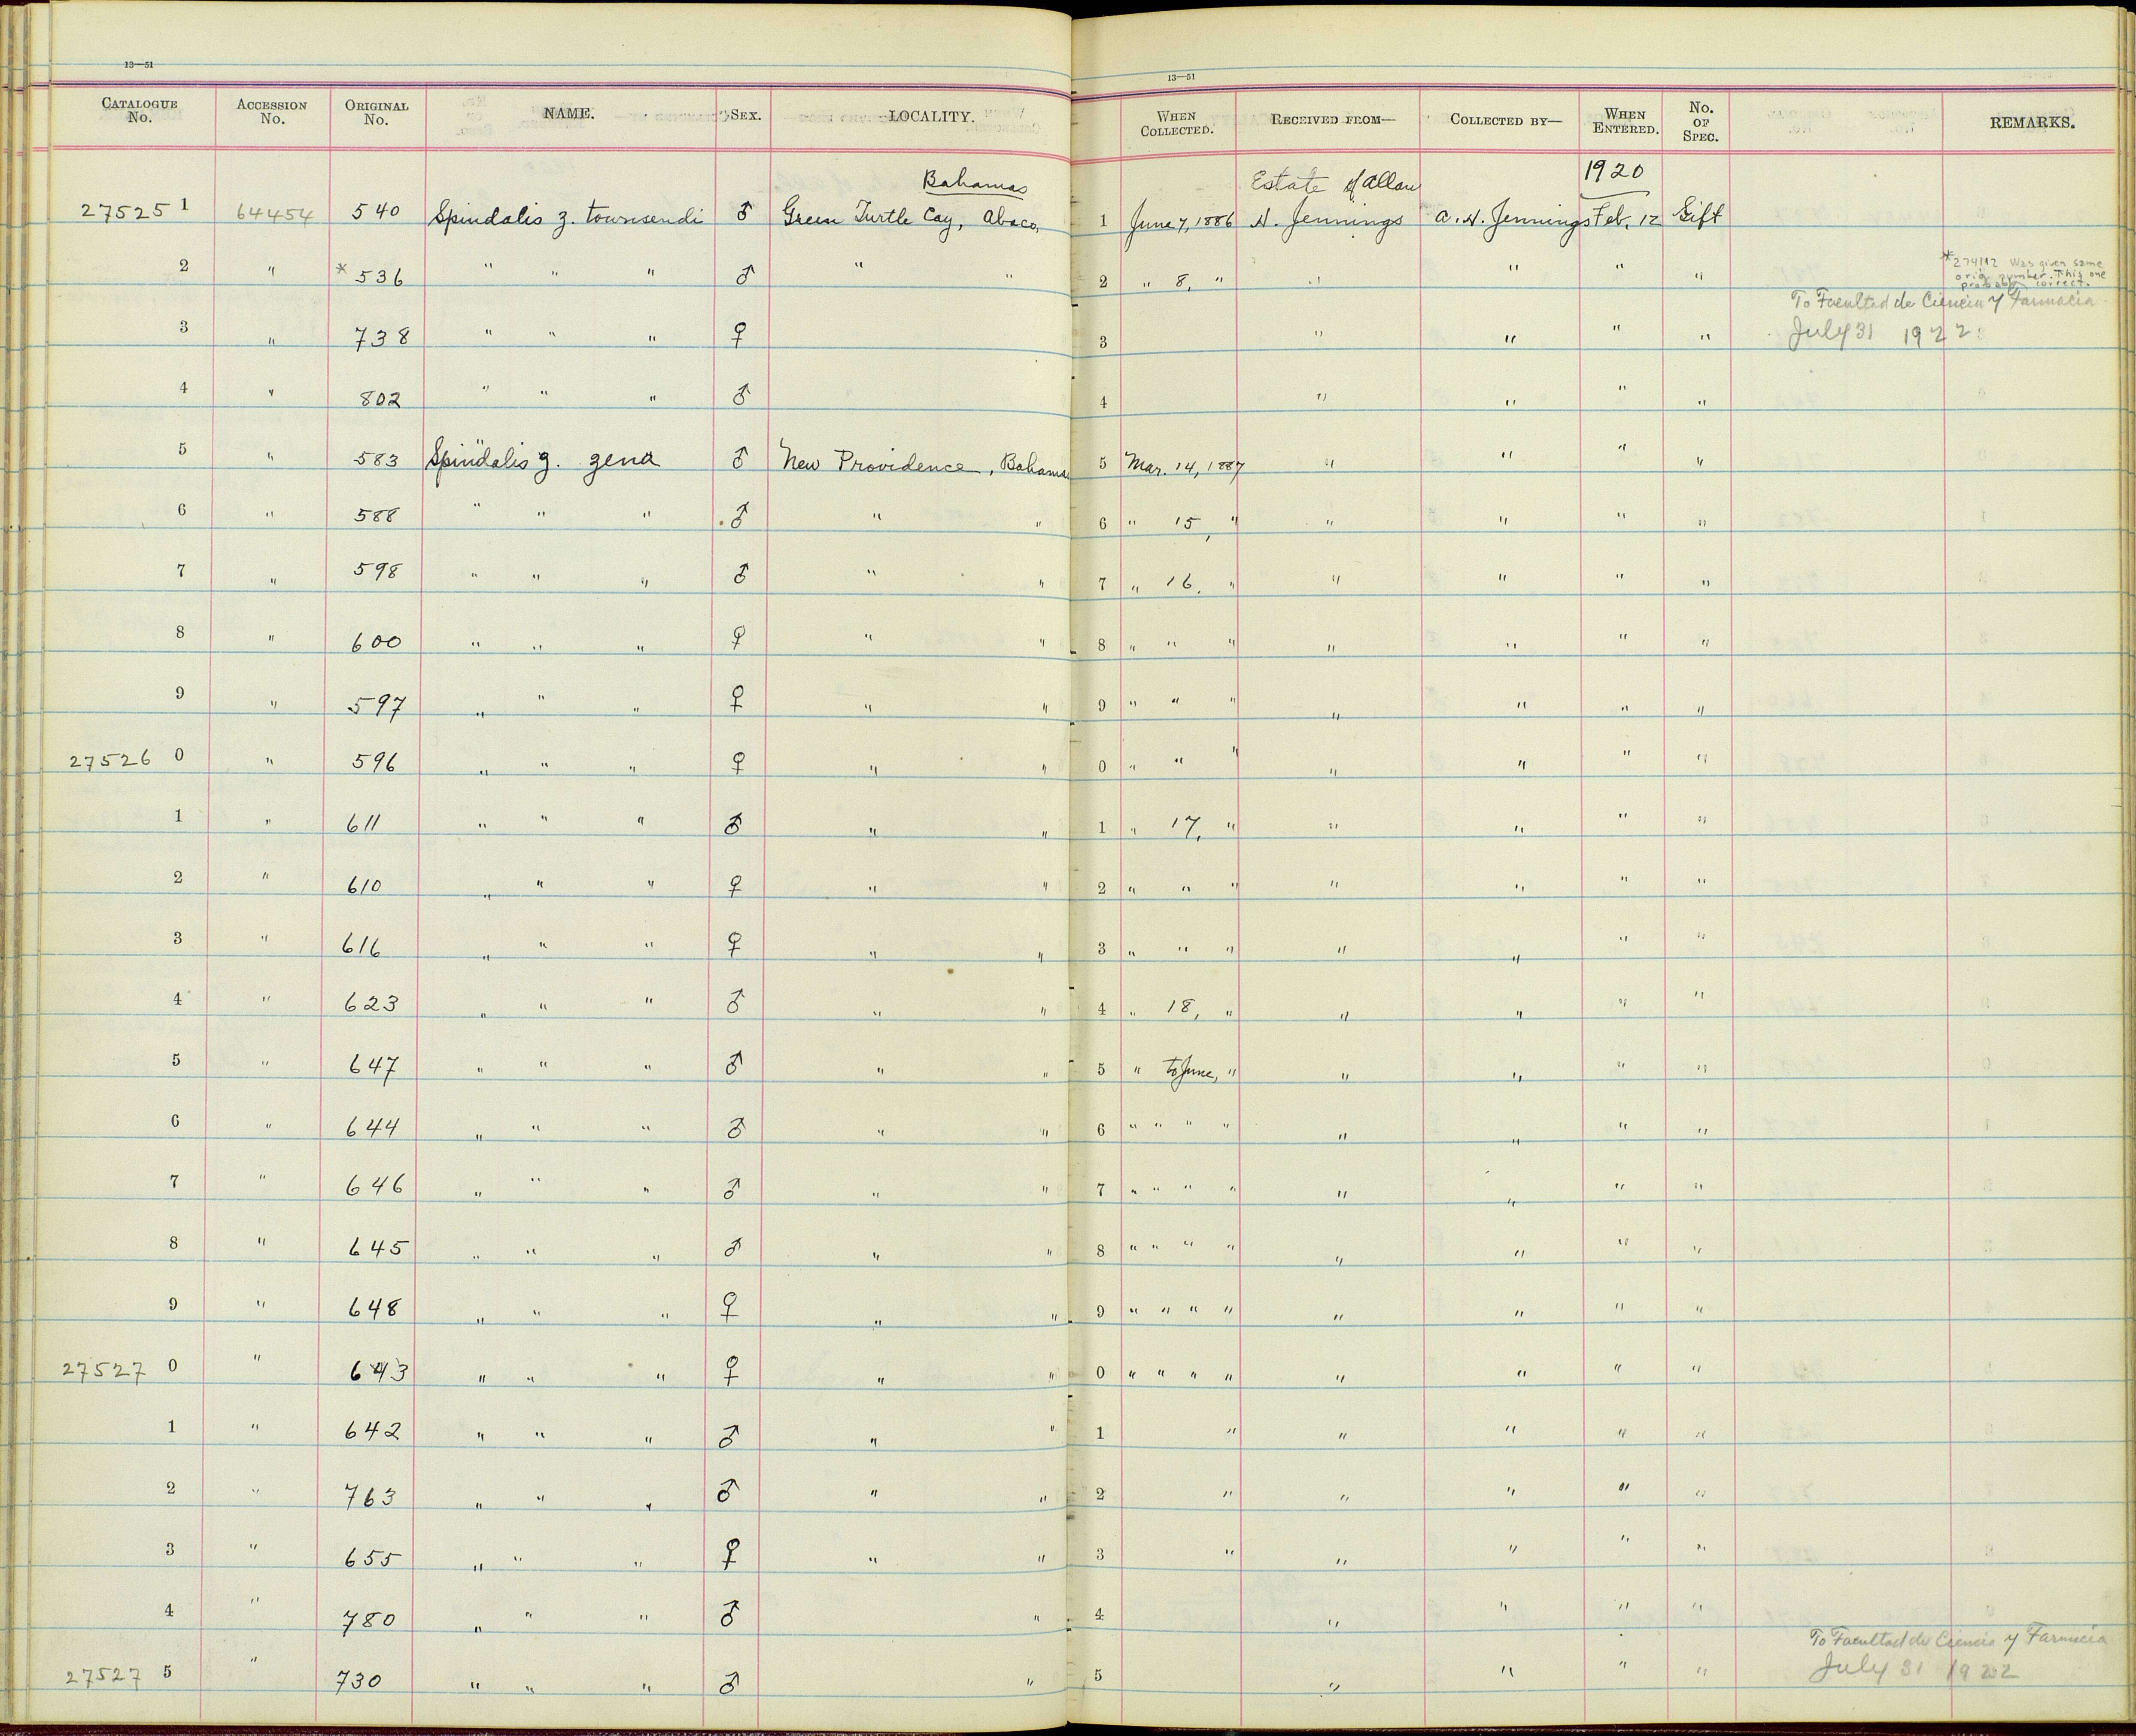 13—51
13—51
CATALOGUE No. ACCESSION No. ORIGINAL No. NAME. SEX. LOCALITY. WHEN COLLECTED. RECEIVED FROM— COLLECTED BY— WHEN ENTERED. No. OF SPEC. REMARKS.
Bahamas Estate of Allan 1920
27525 1 64454 540 Spindalis z. townsendi ♂ Green Turtle Cay, Abaco, 1 June 7, 1886 H. Jennings A. H. Jennings Feb. 12 Gift
2 " * 536 " " " ♂ " " 2 " 8, " " " " "
*274112 Was given same
orig. number. This one
probably correct.
To Facultad de Ciencia y Farmacia
3 " 738 " " " ♀ 3 " " " " July 31 1922
4 " 802 " " " ♂ 4 " " " "
5 " 583 Spindalis z. zena ♂ New Providence, Bahamas 5 Mar. 14, 1887 " " " "
6 " 588 " " " ♂ " " 6 " 15, " " " " "
7 " 598 " " " ♂ " " 7 " 16, " " " " "
8 " 600 " " " ♀ " " 8 " " " " " " "
9 " 597 " " " ♀ " " 9 " " " " " " "
27526 0 " 596 " " " ♀ " " 0 " " " " " " "
1 " 611 " " " ♂ " " 1 " 17, " " " " "
2 " 610 " " " ♀ " " 2 " " " " " " "
3 " 616 " " " ♀ " " 3 " " " " " " "
4 " 623 " " " ♂ " " 4 " 18, " " " " "
5 " 647 " " " ♂ " " 5 " to June, " " " " "
6 " 644 " " " ♂ " " 6 " " " " " " " "
7 " 646 " " " ♂ " " 7 " " " " " " " "
8 " 645 " " " ♂ " " 8 " " " " " " " "
9 " 648 " " " ♀ " " 9 " " " " " " " "
27527 0 " 643 " " " ♀ " " 0 " " " " " " " "
1 " 642 " " " ♂ " " 1 " " " " "
2 " 763 " " " ♂ " " 2 " " " " "
3 " 655 " " " ♀ " " 3 " " " " "
4 " 780 " " " ♂ " 4 " " " "
To Facultad de Ciencia y Farmacia
27527 5 " 730 " " " ♂ " 5 " " " " July 31 1922